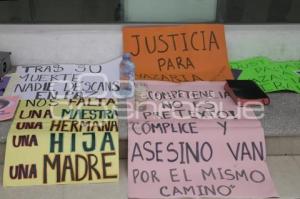 JUSTICIA
PARA
TRAS SU
MUERTE
NADIE DESCANSA
EN PAZ
NOS FALTA
UNA MAESTRA
UNA HERMANA
UNA HIJA
UNA MADRE
INCOMPETENCIA
NO ES
PRETEXTO!
CÓMPLICE Y
ASESINO VAN
POR EL MISMO
CAMINO"